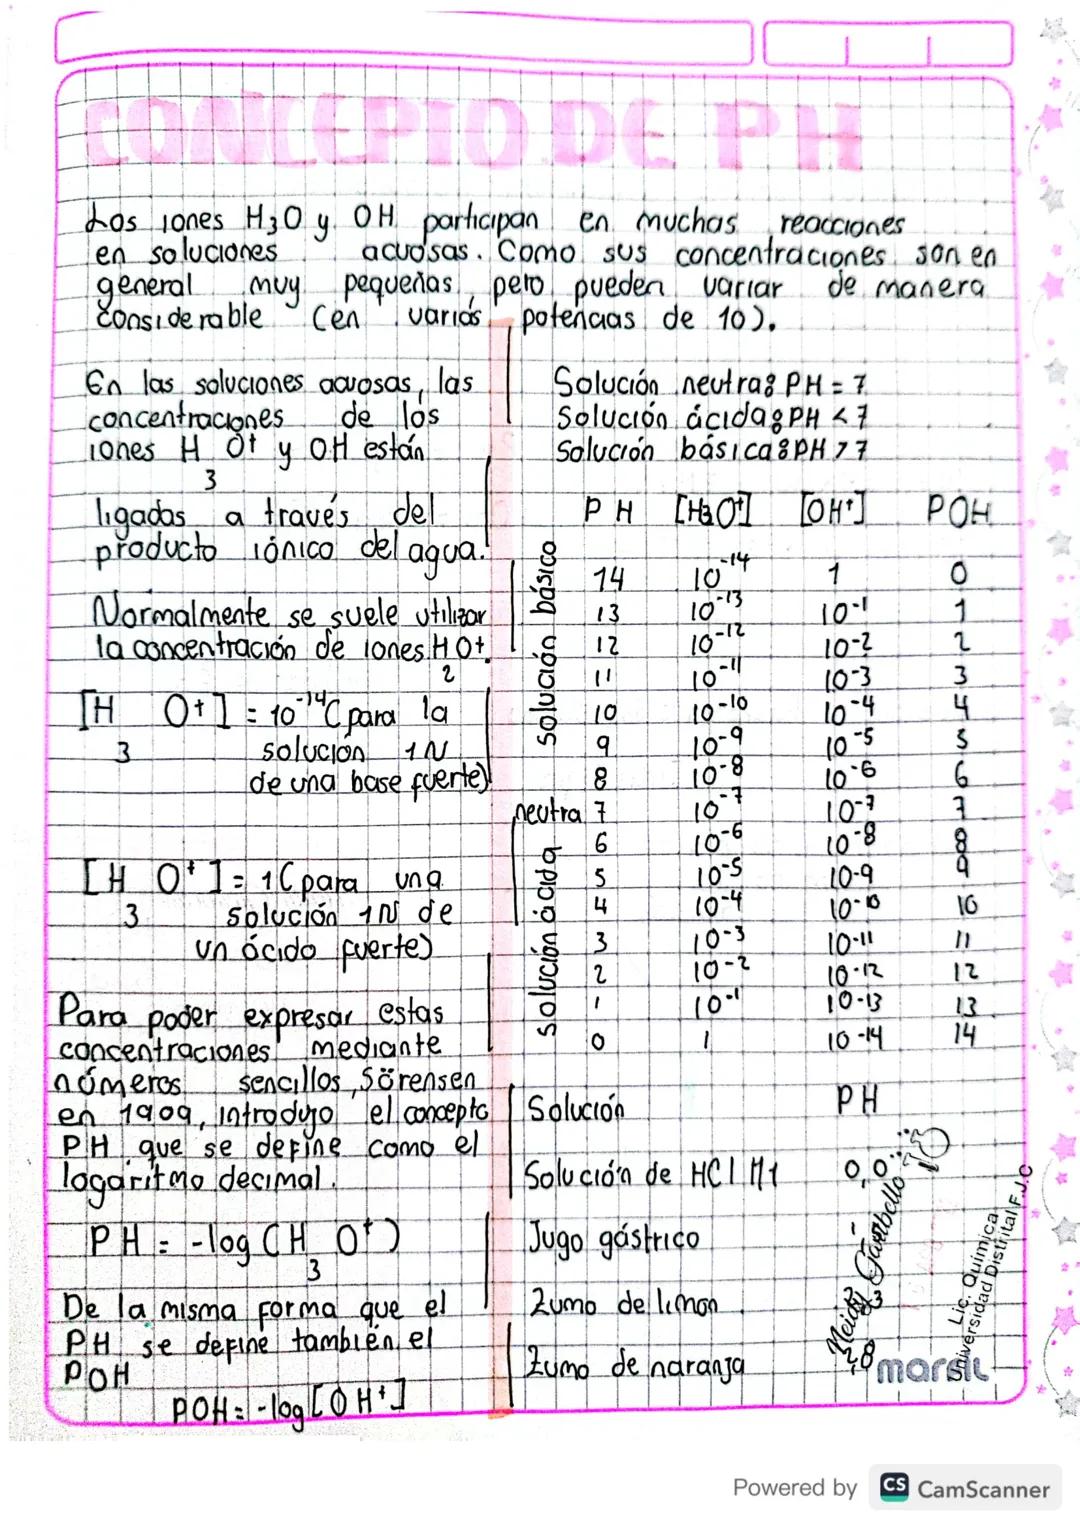 CONCEPTO DE PH
Los iones H3O y OH participan en muchas reacciones
en soluciones acuosas. Como sus concentraciones son en
general muy pequeñas, pero pueden variar de manera
considerable (en varias potencias de 10).
En las soluciones acuosas, las
concentraciones de los
iones H O+ y OH están
3
ligadas a través del
producto iónico del agua.
Normalmente se suele utilizar
la concentración de iones H O+.
2
[H O+] = 10-14 (para la
3 solución 1N
de una base fuerte)
[H O+] = 1 (para una
3 solución 1N de
un ácido fuerte)
Para poder expresar estas
concentraciones mediante
números sencillos, Sörensen
en 1909, introdujo el concepto
PH que se define como el
logaritmo decimal.
PH = -log (H O+)
3
De la misma forma que el
PH se define también el
POH
POH = -log [OH+]
Solución neutra: PH = 7
Solución ácida: PH < 7
Solución básica: PH > 7
PH [H3O+] [OH+] POH
solución básico
14 10-14 1 0
13 10-13 10-1 1
12 10-12 10-2 2
11 10-11 10-3 3
10 10-10 10-4 4
9 10-9 10-5 5
8 10-8 10-6 6
neutra 7 10-7 10-7 7
solución ácida
6 10-6 10-8 8
5 10-5 10-9 9
4 10-4 10-10 10
3 10-3 10-11 11
2 10-2 10-12 12
1 10-1 10-13 13
0 1 10-14 14
Solución PH
Solución de HCl M1 0,0
Jugo gástrico 1
Zumo de limon 2,3
Zumo de naranja 2,8
Lic. Quimica
Universidad Distrital F.J.C
Powered by CS CamScanner